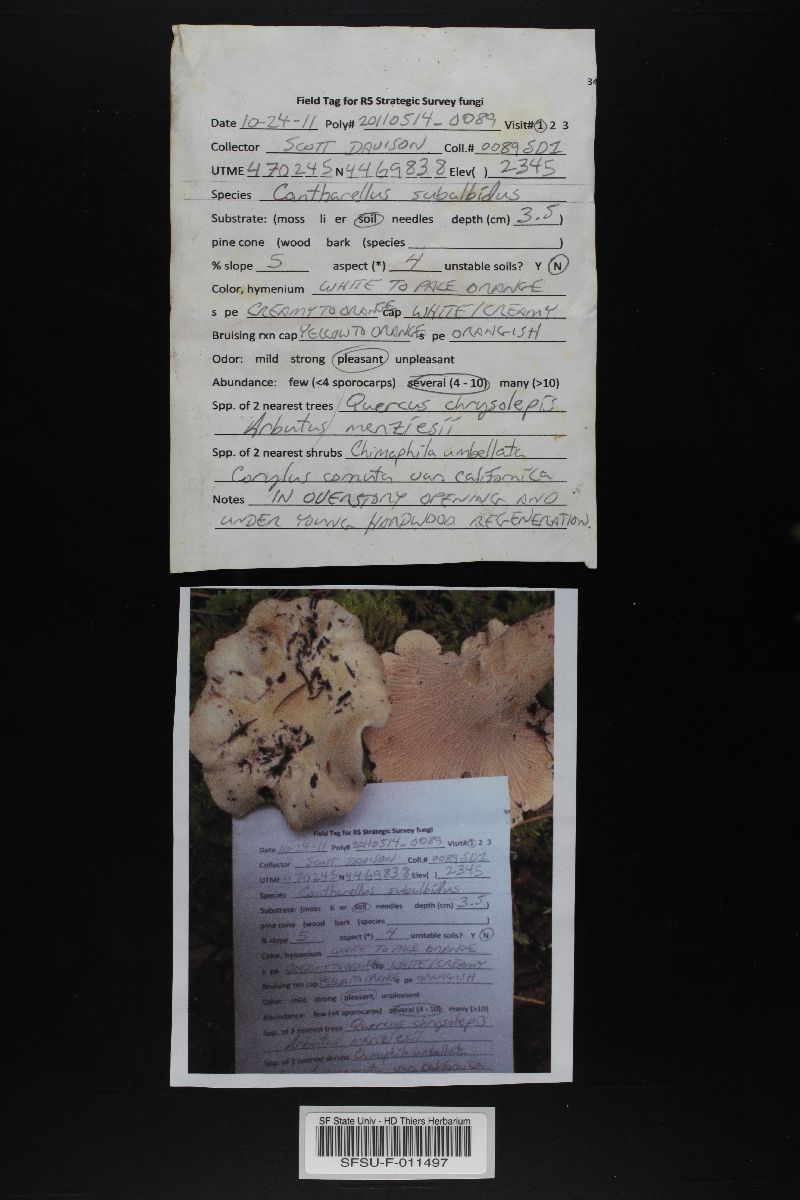 34
Field Tag for R5 Strategic Survey fungi
Date 10-24-11 Poly# 20110514-0089 Visit# 1 2 3
Collector SCOTT DAVISON Coll.# 0089SD1
UTME 470245 N 4469838 Elev( ) 2345
Species Cantharellus subalbidus
Substrate: (moss li er soil needles depth (cm) 3.5 )
pine cone (wood bark (species )
% slope 5 aspect (*) 4 unstable soils? Y N
Color, hymenium WHITE TO PALE ORANGE
s pe CREAMY TO ORANGE cap WHITE/CREAMY
Bruising rxn cap YELLOW TO ORANGE s pe ORANGISH
Odor: mild strong pleasant unpleasant
Abundance: few (<4 sporocarps) several (4 - 10) many (>10)
Spp. of 2 nearest trees Quercus chrysolepis
Arbutus menziesii
Spp. of 2 nearest shrubs Chimaphila umbellata
Corylus cornuta var. californica
Notes IN OVERSTORY OPENING AND
UNDER YOUNG HARDWOOD REGENERATION.
Field Tag for R5 Strategic Survey fungi
Date 10-24-11 Poly# 20110514-0089 Visit# 1 2 3
Collector SCOTT DAVISON Coll.# 0089SD1
UTME 470245 N 4469838 Elev( ) 2345
Species Cantharellus subalbidus
Substrate: (moss li er soil needles depth (cm) 3.5 )
pine cone (wood bark (species )
% slope 5 aspect (*) 4 unstable soils? Y N
Color, hymenium WHITE TO PALE ORANGE
s pe CREAMY TO ORANGE cap WHITE/CREAMY
Bruising rxn cap YELLOW TO ORANGE s pe ORANGISH
Odor: mild strong pleasant unpleasant
Abundance: few (<4 sporocarps) several (4 - 10) many (>10)
Spp. of 2 nearest trees Quercus chrysolepis
Arbutus menziesii
Spp. of 2 nearest shrubs Chimaphila umbellata
var. californica
SF State Univ - HD Thiers Herbarium
SFSU-F-011497